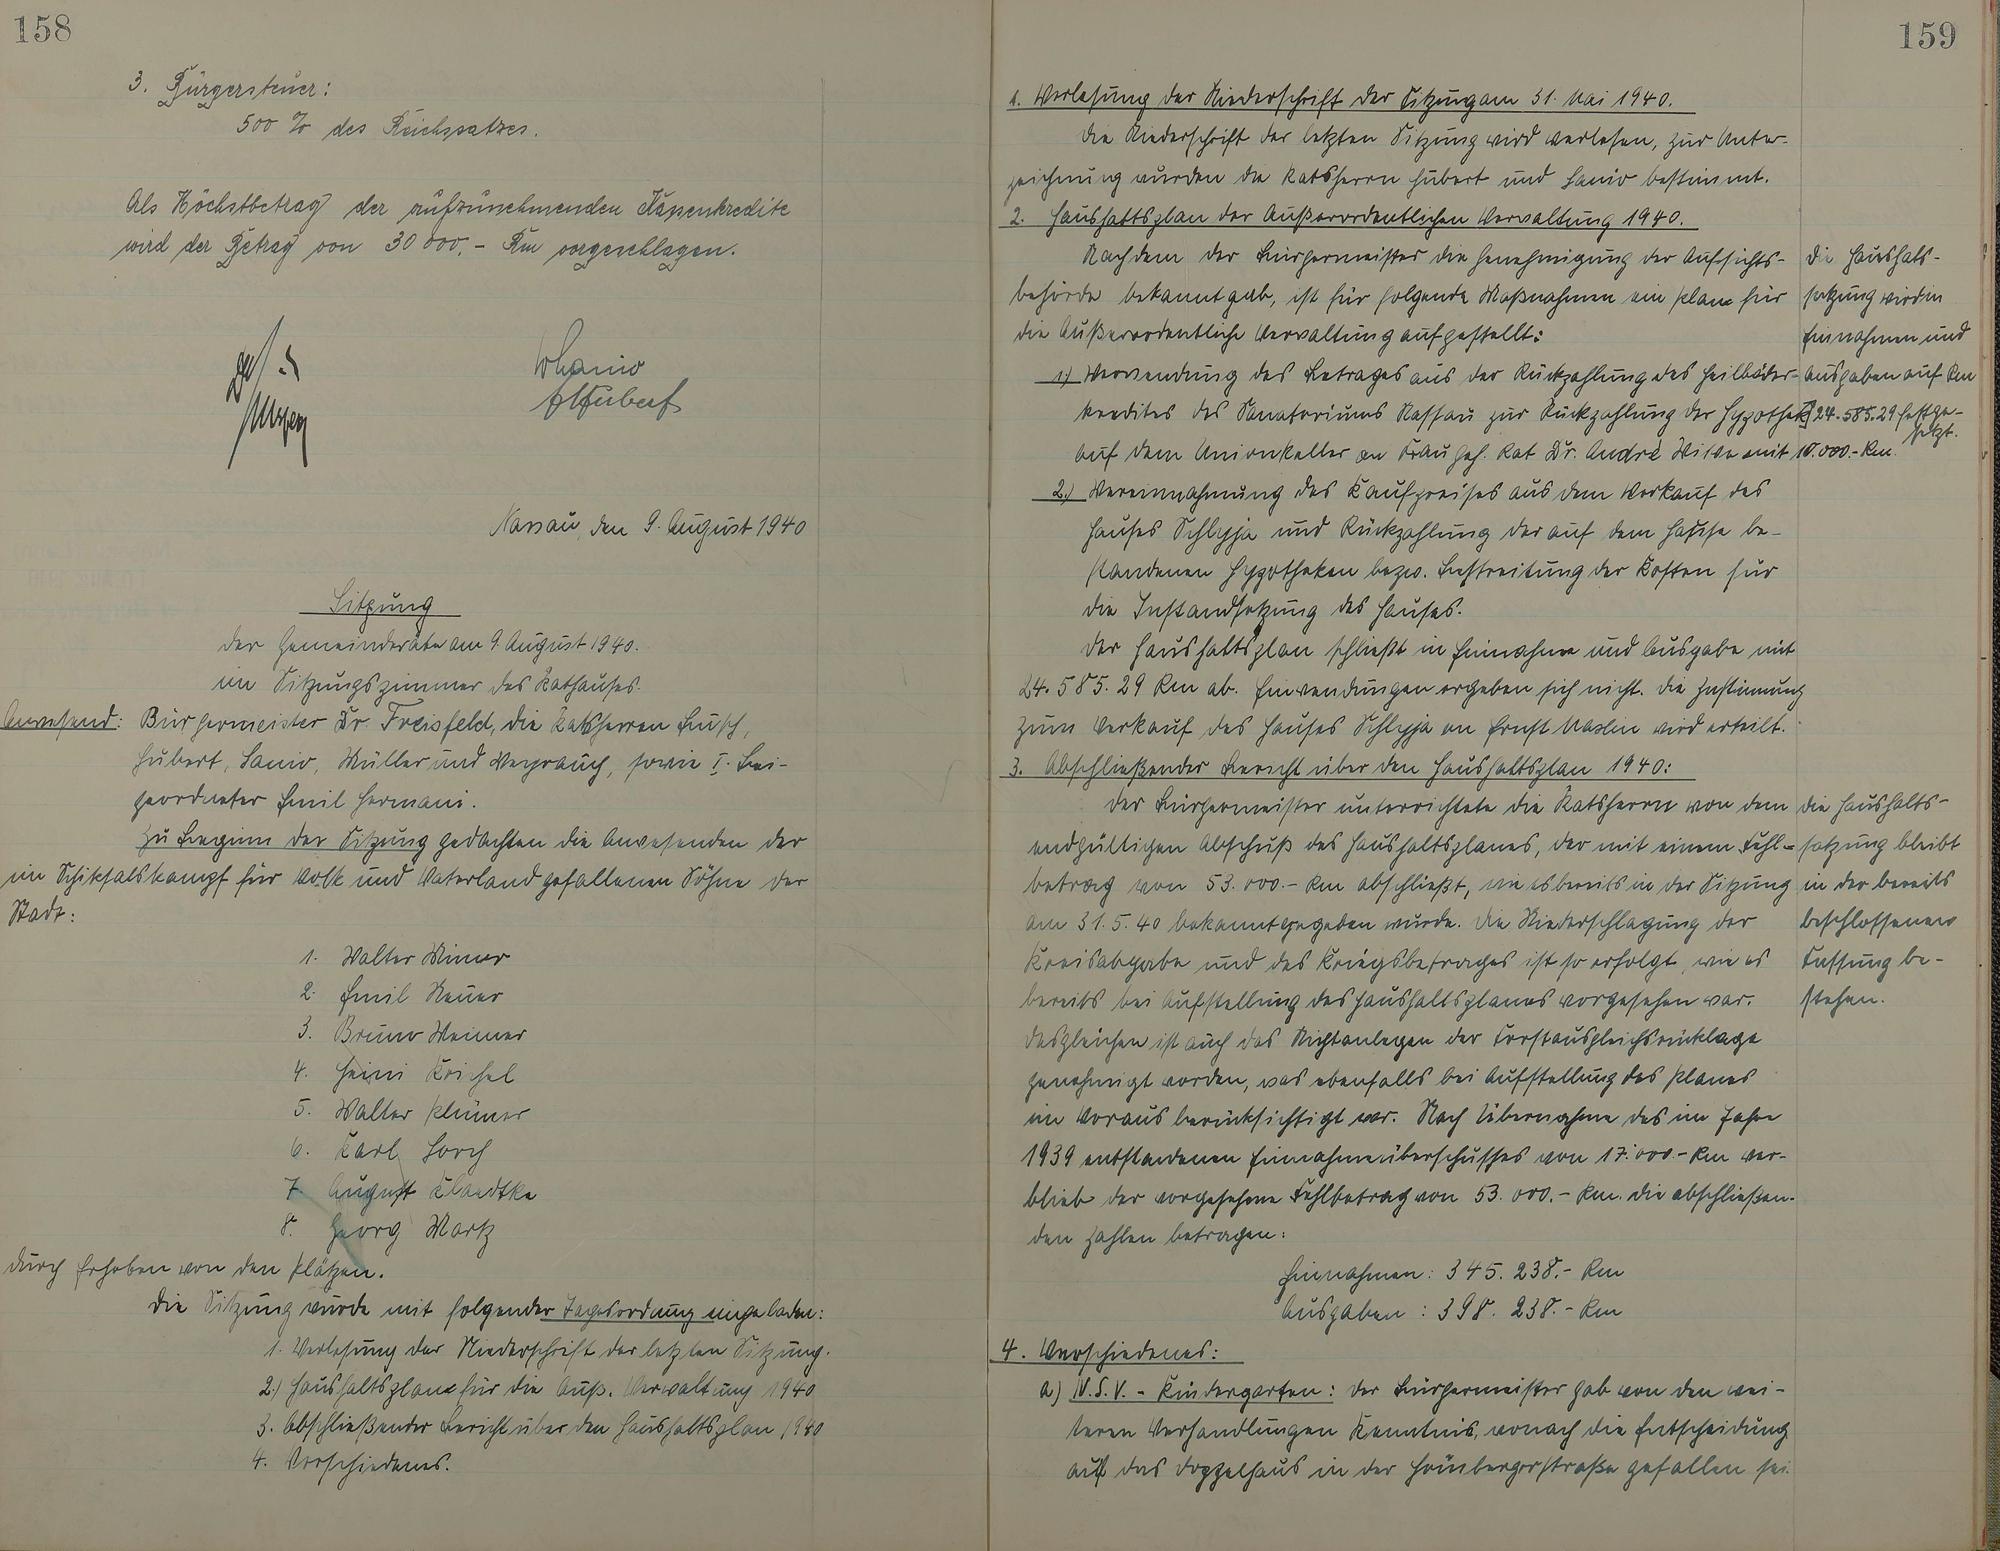 158
3. Bürgersteuer:
500 % des Reichssatzes.
Als Höchstbetrag der aufzunehmenden Kassenkredite
wird der Betrag von 30 000,- Rm vorgeschlagen.
Lanio
Hubert
Nassau, den 9. August 1940
Sitzung
der Gemeinderäte am 9. August 1940.
im Sitzungszimmer des Rathauses.
Anwesend: Bürgermeister Dr. Freisfeld, die Ratsherren Busch,
Hubert, Lanio, Müller und Weyrauch, sowie I. Bei-
geordneter Emil Hermani.
Zu Beginn der Sitzung gedachten die Anwesenden der
im Schiksalskampf für Volk und Vaterland gefallenen Söhne der
Stadt:
1. Walter Minor
2. Emil Neuer
3. Bruno Weimer
4. Heini Krichel
5. Walter Plümer
6. Karl Lorch
7. August Klaedtke
8. Georg Martz
durch Erheben von den Plätzen.
Die Sitzung wurde mit folgender Tagesordnung eingeladen:
1. Verlesung der Niederschrift der letzten Sitzung.
2.) Haushaltsplan für die Auß. Verwaltung 1940
3. Abschließender Bericht über den Haushaltsplan 1940
4. Verschiedenes.
159
1. Verlesung der Niederschrift der Sitzung am 31. Mai 1940.
Die Niederschrift der letzten Sitzung wird verlesen, zur Unter-
zeichnung wurden die Ratsherrn Hubert und Lanio bestimmt.
2. Haushaltsplan der Außerordentlichen Verwaltung 1940.
Nachdem der Bürgermeister die Genehmigung der Aufsichts-
behörde bekanntgab, ist für folgende Maßnahmen ein Plan für
die Außerordentliche Verwaltung aufgestellt:
1) Verwendung des Betrages aus der Rückzahlung des Heilbäder-
kredites des Sanatoriums Nassau zur Rückzahlung der Hypothek
auf dem Unionkeller an Frau Geh. Rat Dr. André Witwe mit 10.000.- Rm.
2.) Vereinnahmung des Kaufpreises aus dem Verkauf des
Hauses Schlyja und Rückzahlung der auf dem Hause be-
standenen Hypotheken bezw. Bestreitung der Kosten für
die Instandsetzung des Hauses.
Der Haushaltsplan schließt in Einnahme und Ausgabe mit
24.585.29 Rm ab. Einwendungen ergeben sich nicht. Die Zustimmung
zum Verkauf des Hauses Schlyja an Ernst Maxlin wird erteilt.
Die Haushalts-
satzung wird in
Einnahmen und
Ausgaben auf Rm
24.585.29 festge-
setzt.
3. Abschließender Bericht über den Haushaltsplan 1940:
Der Bürgermeister unterrichtete die Ratsherrn von dem
endgültigen Abschluß des Haushaltsplanes, der mit einem Fehl-
betrag von 53.000.- Rm abschließt, wie es bereits in der Sitzung
am 31.5.40 bekanntgegeben wurde. Die Niederschlagung der
Kreisabgabe und des Kriegsbetrages ist so erfolgt, wie es
bereits bei Aufstellung des Haushaltsplanes vorgesehen war.
Desgleichen ist auch das Nichtanlegen der Forstausgleichsrücklage
genehmigt worden, was ebenfalls bei Aufstellung des Planes
im Voraus berücksichtigt war. Nach Übernahme des im Jahre
1939 entstandenen Einnahmeüberschusses von 17.000.- Rm ver-
blieb der vorgesehene Fehlbetrag von 53.000.- Rm. Die abschließen-
den Zahlen betragen:
Einnahmen: 345.238.- Rm
Ausgaben: 398.238.- Rm
Die Haushalts-
satzung bleibt
in der bereits
beschlossenen
Fassung be-
stehen.
4. Verschiedenes:
a) N.S.V. - Kindergarten: Der Bürgermeister gab von den wei-
teren Verhandlungen Kenntnis, wonach die Entscheidung
auf das Doppelhaus in der Hömbergerstraße gefallen sei.